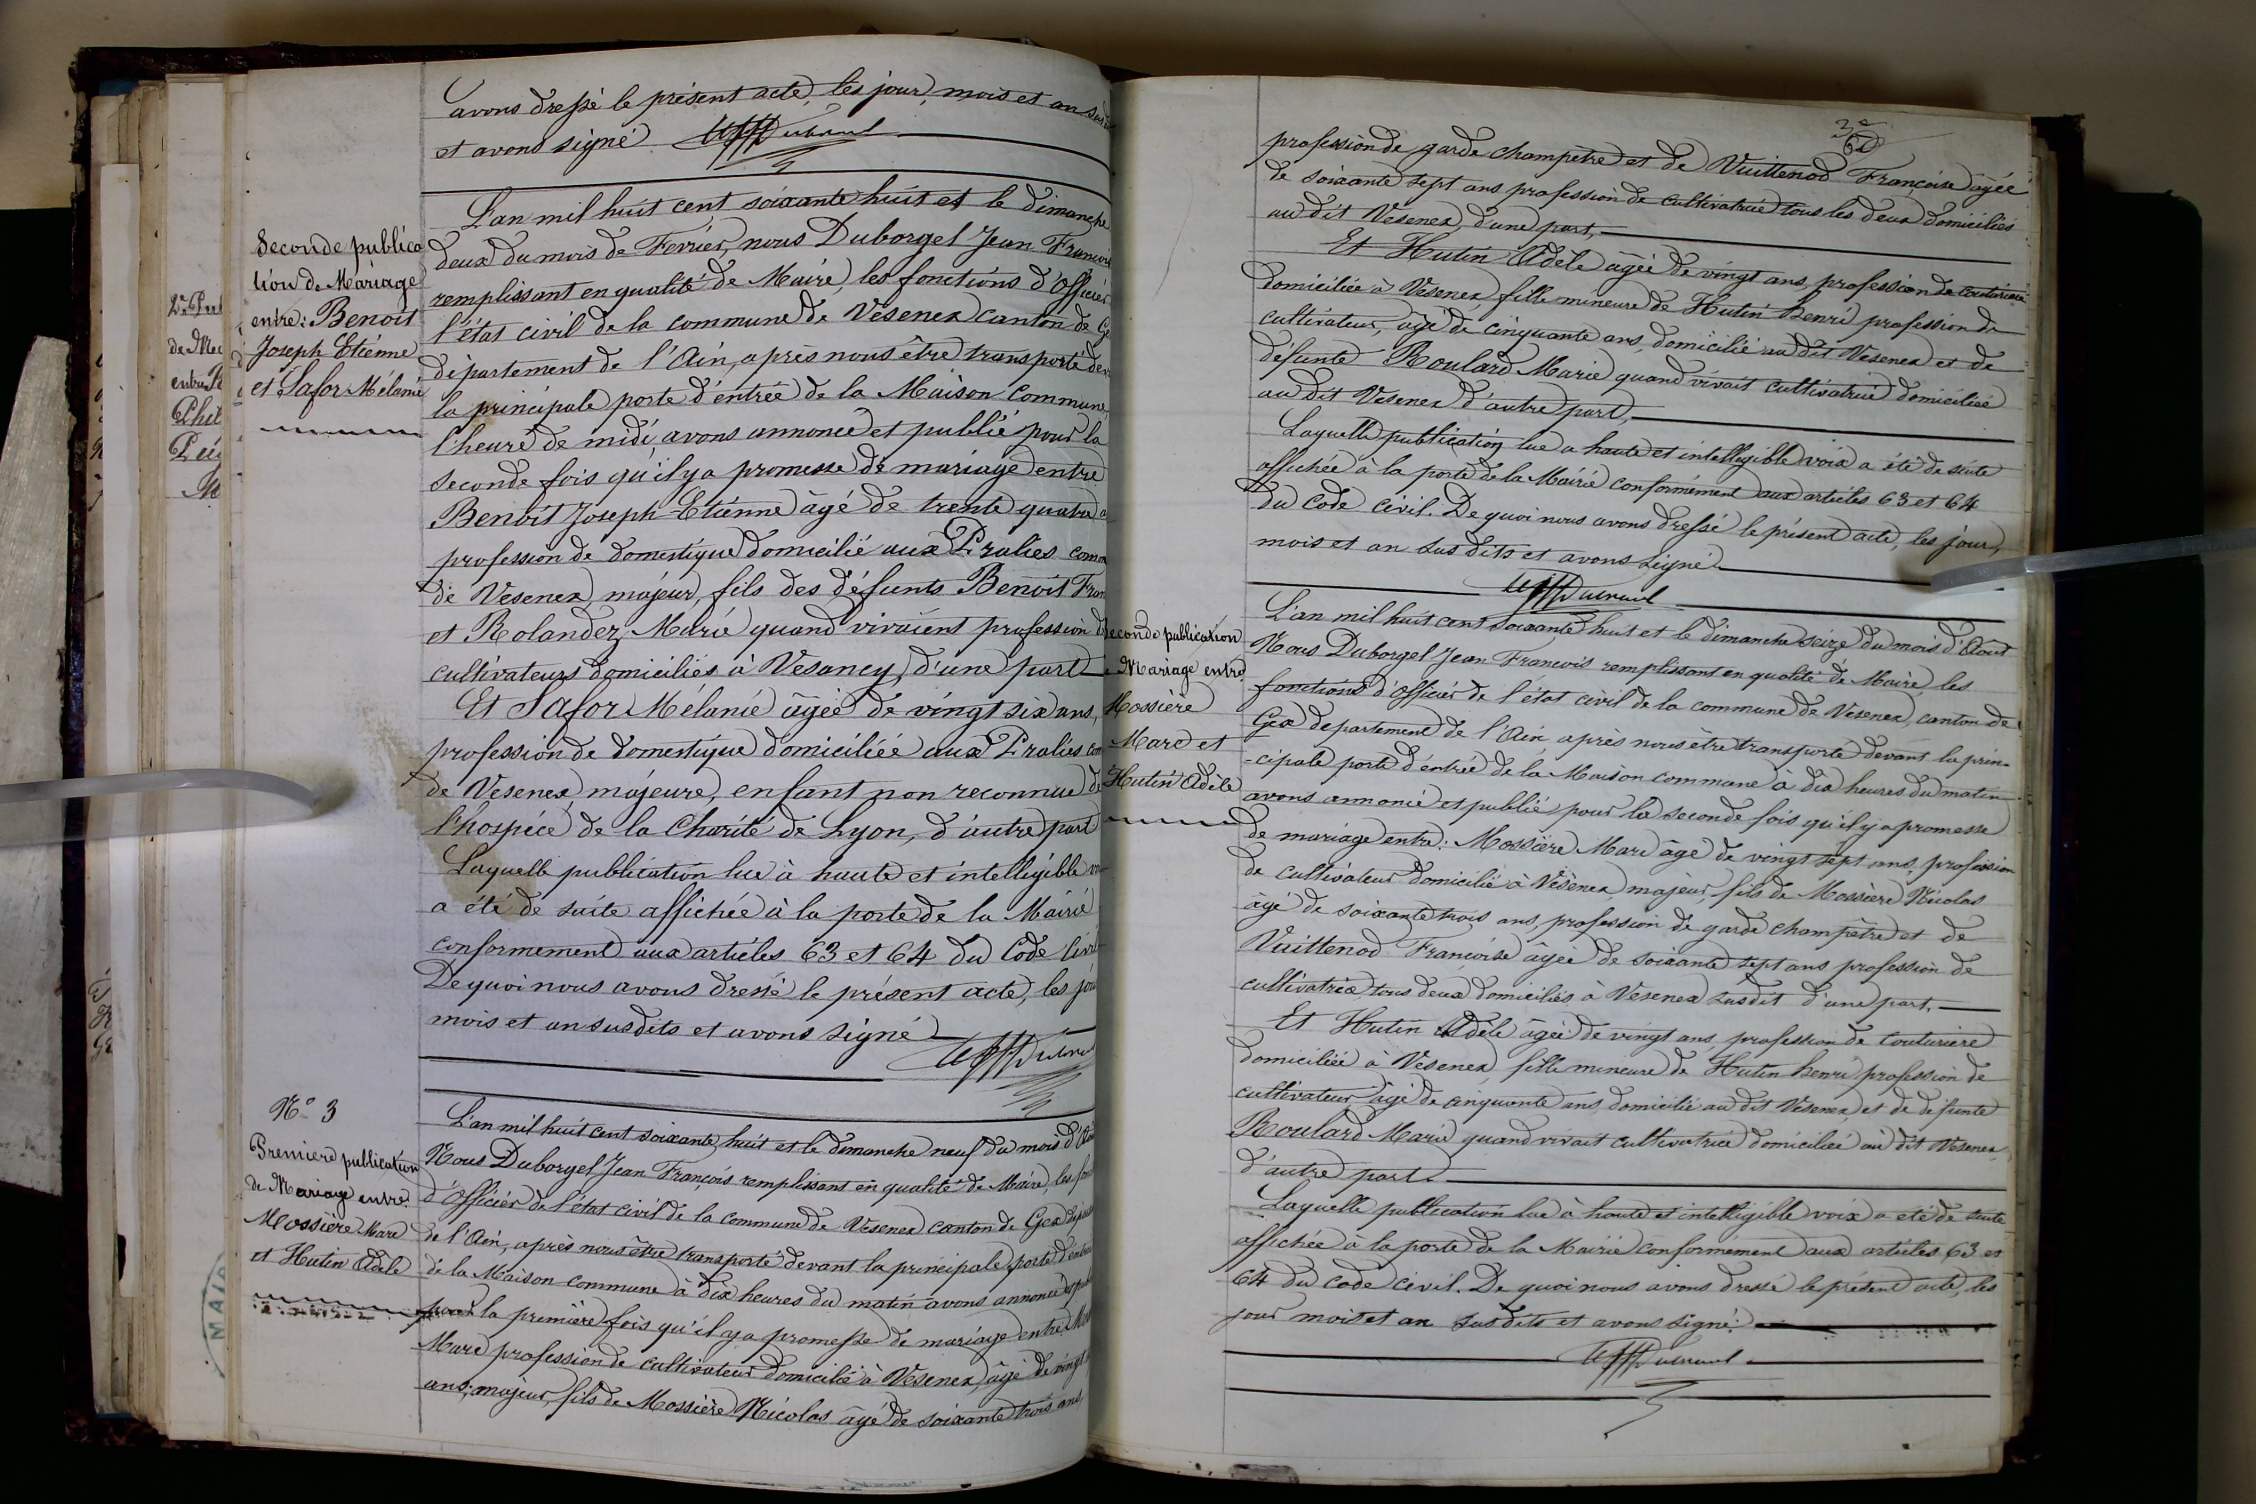 avons dressé le présent acte, les jour, mois et an susd
et avons signé
Seconde publica
tion de Mariage
entre: Benoit
Joseph Etienne
et Safor Mélanie
L'an mil huit cent soixante huit et le dimanche
deux du mois de Fevrier, nous Duborgel Jean François
remplissant en qualité de Maire, les fonctions d'Officier
l'état civil de la commune de Vesenex canton de
département de l'Ain, après nous être transporté dev
la principale porte d'entrée de la Maison Commune
l'heure de midi, avons annoncé et publié pour la
seconde fois qu'il y a promesse de mariage entre
Benoit Joseph Etienne âgé de trente quatre a
profession de domestique domicilié aux Pralies com
de Vesenex, majeur, fils des défunts Benoit Fran
et Rolandez Marie quand vivaient profession d
cultivateurs domiciliés à Vesancy, d'une part
Et Safor Mélanie âgée de vingt six ans,
profession de domestique domiciliée aux Pralies com
de Vesenex majeure, enfant non reconnue de
l'hospice de la Charité de Lyon, d'autre part
Laquelle publication lue à haute et intelligible vo
a été de suite affichée à la porte de la Mairie
conformement aux articles 63 et 64 du Code Civil
De quoi nous avons dressé le présent acte, les jou
mois et an susdits et avons signé
N° 3
Première publication
de Mariage entre
Mossière Marc
et Hutin Adèle
L'an mil huit cent soixante huit et le dimanche neuf du mois d'Aout
Nous Duborgel Jean François remplissant en qualité de Maire, les fon
d'Officier de l'état civil de la commune de Vesenex canton de Gex dépa
de l'Ain, après nous être transporté devant la principale porte d'entrée
de la Maison commune à dix heures du matin avons annoncé et publ
pour la première fois qu'il y a promesse de mariage entre Mos
Marc profession de cultivateur domicilié à Vesenex, âgé de vingt
ans, majeur, fils de Mossière Nicolas âgé de soixante trois ans,
profession de garde champetre et de Vuittenod Françoise âgée
de soixante sept ans profession de cultivatrice tous les deux domiciliés
au dit Vesenex, d'une part,
Et Hutin Adèle âgée de vingt ans, profession de couturière
domiciliée à Vesenex, fille mineure de Hutin Henri profession de
cultivateur, âgé de cinquante ans, domicilié au dit Vesenex et de
défunte Roulard Marie quand vivait cultivatrice domiciliée
au dit Vesenex d'autre part,
Laquelle publication, lue a haute et intelligible voix a été de suite
affichée à la porte de la Mairie conformément aux articles 63 et 64
du code civil. De quoi nous avons dressé le présent acte, les jour,
mois et an susdits et avons signé
econde publication
Mariage entre
Mossière
Marc et
Hutin Adèle
L'an mil huit cent soixante huit et le dimanche seize du mois d'Aout
Nous Duborgel Jean François remplissant en qualité de Maire, les
fonctions d'Officier de l'état civil de la commune de Vesenex, canton de
Gex département de l'Ain après nous être transporté devant la prin-
-cipale porte d'entrée de la Maison commune à dix heures du matin
avons annoncé et publié pour la seconde fois qu'il y a promesse
de mariage entre: Mossière Marc âgé de vingt sept ans, profession
de cultivateur domicilié à Vesenex, majeur, fils de Mossière Nicolas
âgé de soixante trois ans, profession de garde champêtre et de
Vuittenod Françoise âgée de soixante sept ans profession de
cultivatrice tous deux domiciliés à Vesenex susdit d'une part,
Et Hutin Adèle âgée de vingt ans profession de couturière
domiciliée à Vesenex, fille mineure de Hutin henri profession de
cultivateur âgé de cinquante ans domicilié au dit Vesenex et de défunte
Roulard Marie quand vivait cultivatrice domiciliée au dit Vesenex,
d'autre part.
Laquelle publication lue à haute et intelligible voix a été de suite
affichée à la porte de la Mairie conformément aux articles 63 et
64 du code civil. De quoi nous avons dressé le présent acte, les
jour mois et an susdits et avons signé